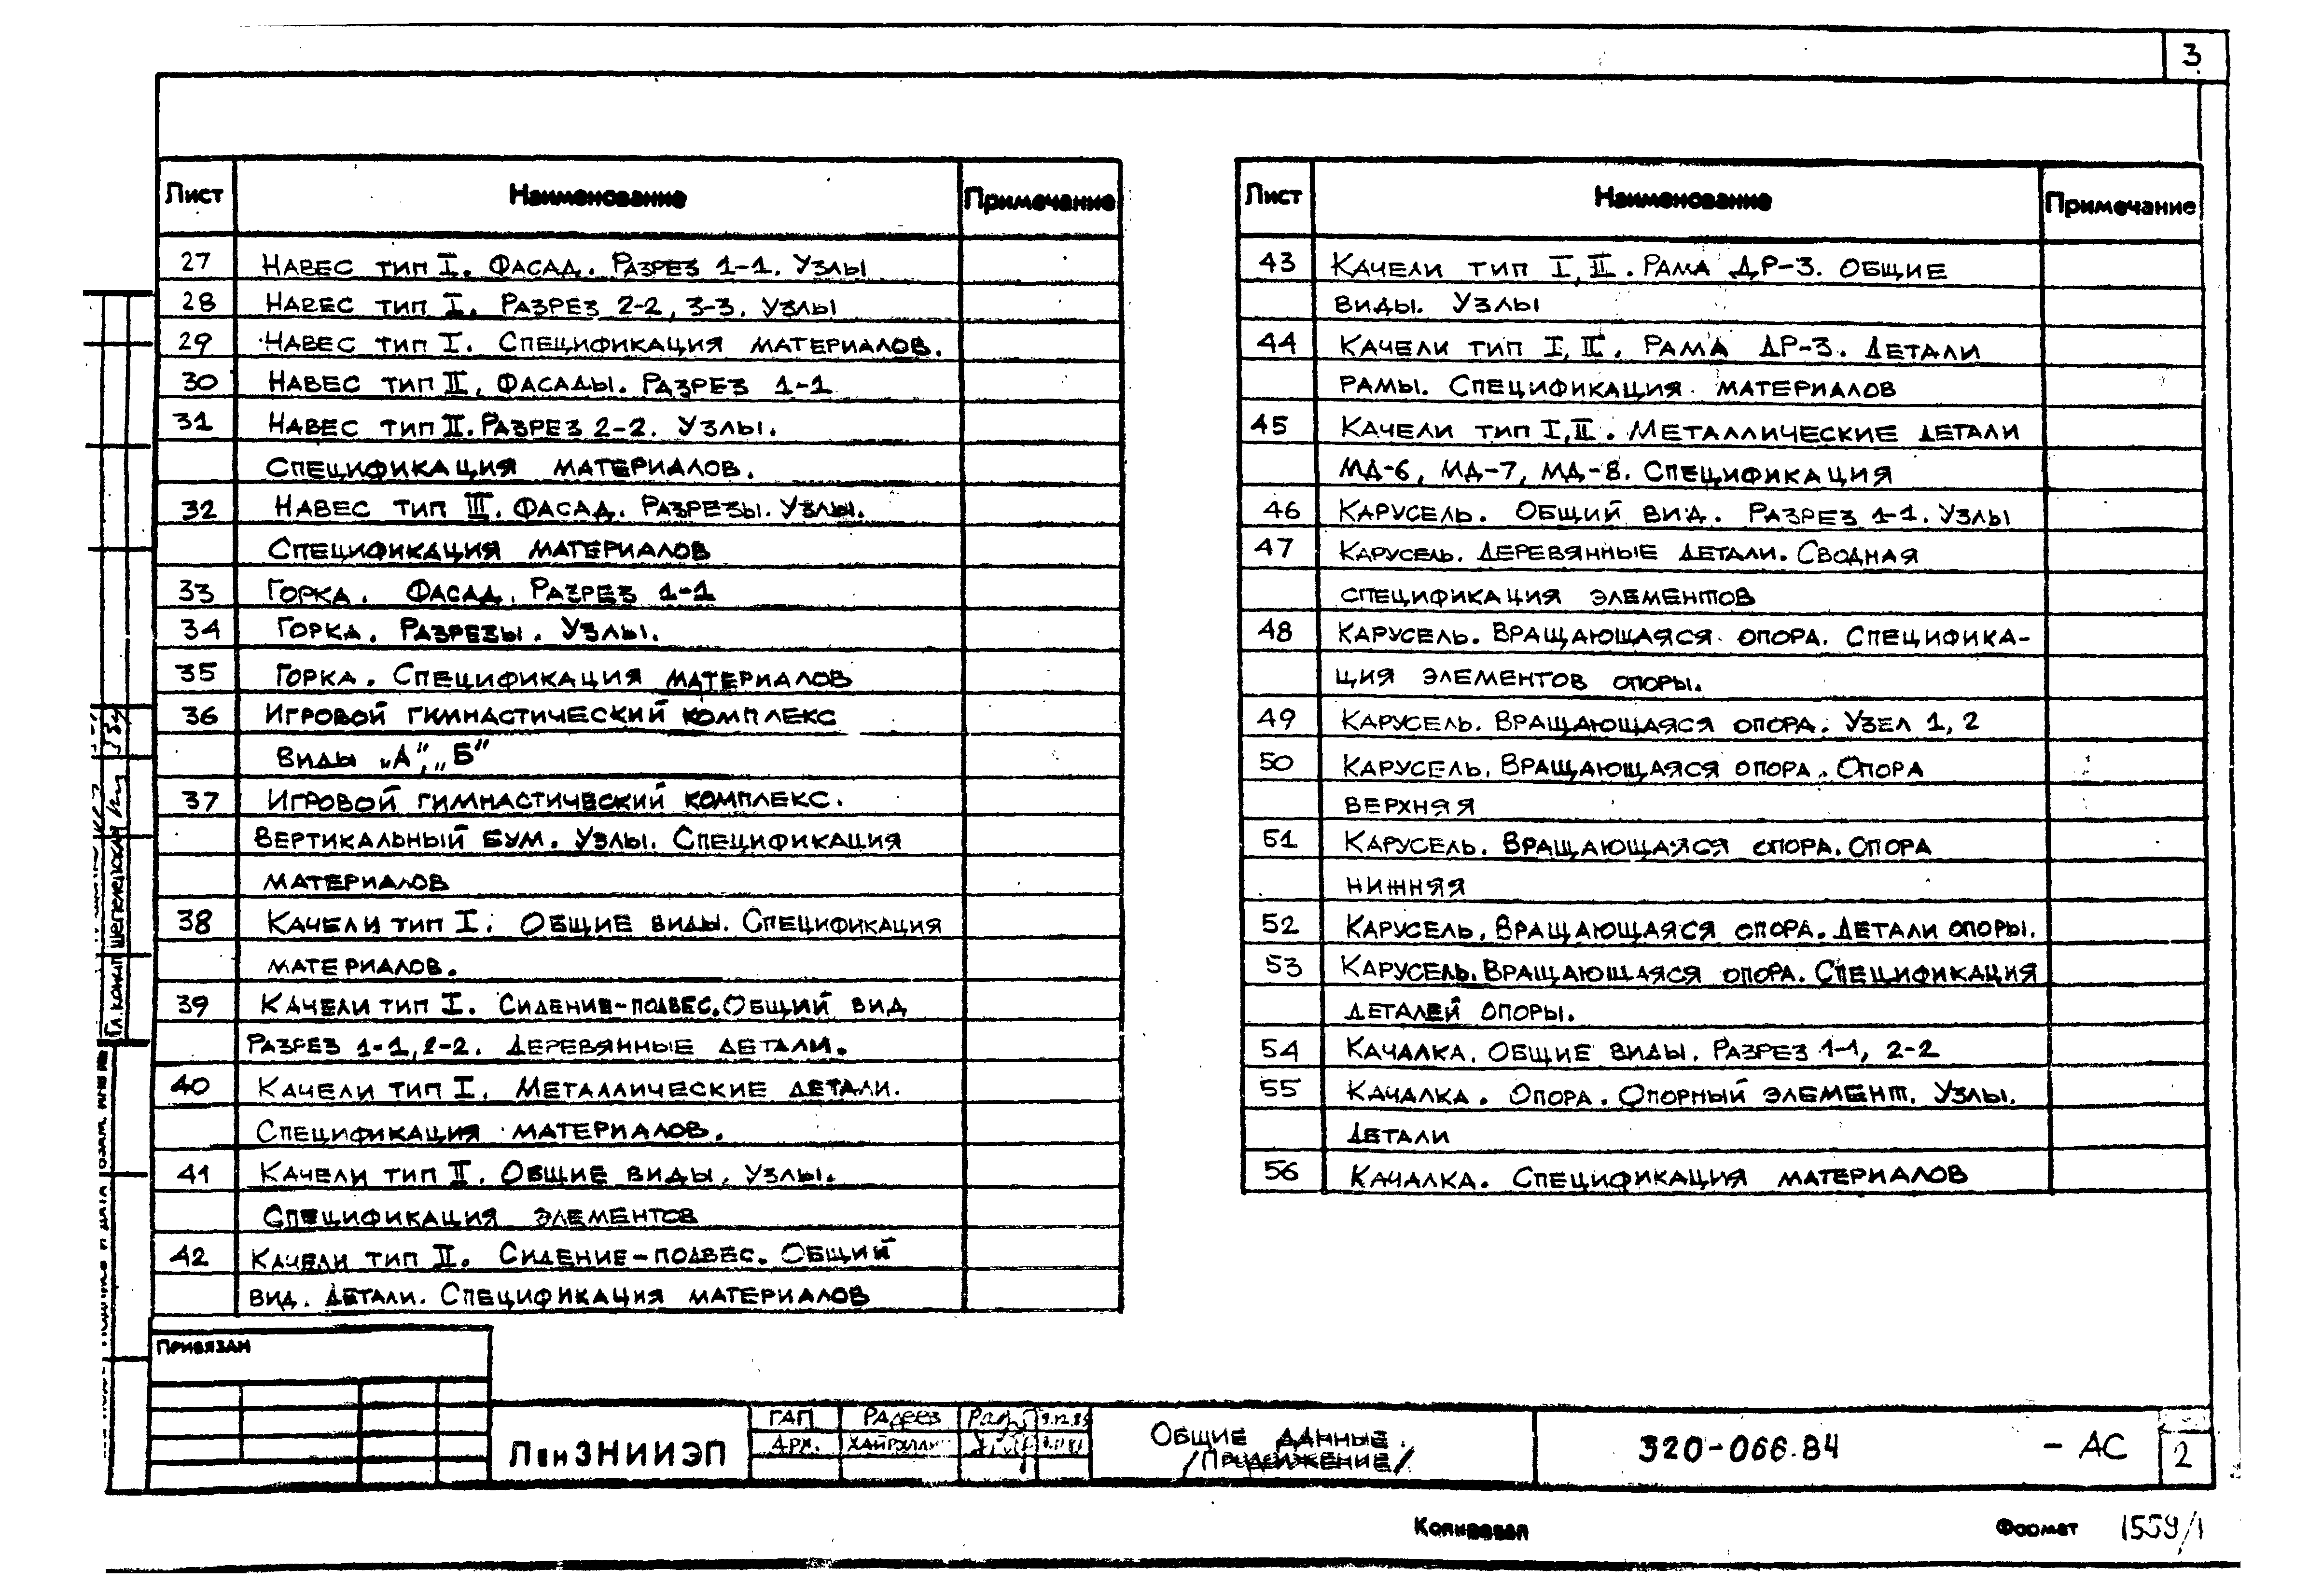 3
Лист Наименование Примечание
27 Навес тип I. Фасад. Разрез 1-1. Узлы
28 Навес тип I. Разрез 2-2, 3-3. Узлы
29 Навес тип I. Спецификация материалов.
30 Навес тип II. Фасады. Разрез 1-1
31 Навес тип II. Разрез 2-2. Узлы.
Спецификация материалов.
32 Навес тип III. Фасад. Разрезы. Узлы.
Спецификация материалов
33 Горка. Фасад. Разрез 1-1
34 Горка. Разрезы. Узлы.
35 Горка. Спецификация материалов
36 Игровой гимнастический комплекс
Виды „А“, „Б“
37 Игровой гимнастический комплекс.
Вертикальный бум. Узлы. Спецификация
материалов
38 Качели тип I. Общие виды. Спецификация
материалов.
39 Качели тип I. Сидение-подвес. Общий вид
Разрез 1-1, 2-2. Деревянные детали.
40 Качели тип I. Металлические детали.
Спецификация материалов.
41 Качели тип II. Общие виды. Узлы.
Спецификация элементов
42 Качели тип II. Сидение-подвес. Общий
вид. Детали. Спецификация материалов
Лист Наименование Примечание
43 Качели тип I, II. Рама ДР-3. Общие
виды. Узлы
44 Качели тип I, II. Рама ДР-3. Детали
рамы. Спецификация материалов
45 Качели тип I, II. Металлические детали
МД-6, МД-7, МД-8. Спецификация
46 Карусель. Общий вид. Разрез 1-1. Узлы
47 Карусель. Деревянные детали. Сводная
спецификация элементов
48 Карусель. Вращающаяся опора. Специфика-
ция элементов опоры.
49 Карусель. Вращающаяся опора. Узел 1, 2
50 Карусель. Вращающаяся опора. Опора
верхняя
51 Карусель. Вращающаяся опора. Опора
нижняя
52 Карусель. Вращающаяся опора. Детали опоры.
53 Карусель. Вращающаяся опора. Спецификация
деталей опоры.
54 Качалка. Общие виды. Разрез 1-1, 2-2
55 Качалка. Опора. Опорный элемент. Узлы.
Детали
56 Качалка. Спецификация материалов
Привязан
ЛенЗНИИЭП
ГАП Радеев
Арх.
Общие данные.
/Продолжение/
320-066.84 - АС 2
Копировал Формат 1559/1